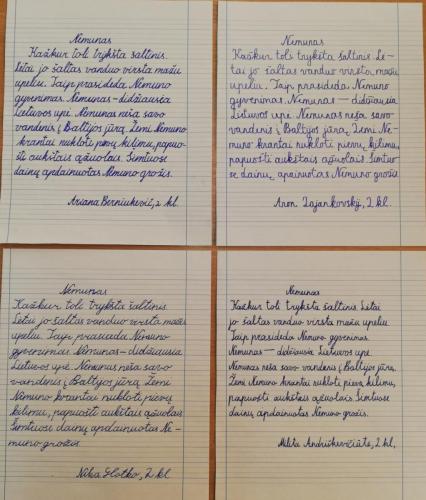 Nemunas
Kažkur toli trykšta šaltinis.
Lėtai jo šaltas vanduo virsta mažu
upeliu. Taip prasideda Nemuno
gyvenimas. Nemunas – didžiausia
Lietuvos upė. Nemunas neša savo
vandenis į Baltijos jūrą. Žemi Nemuno
krantai nukloti pievų kilimu, papuo-
šti aukštais ąžuolais. Šimtuose
dainų apdainuotas Nemuno grožis.
Ariana Berniukevič, 2 kl.
Nemunas
Kažkur toli trykšta šaltinis. Lė-
tai jo šaltas vanduo virsta mažu
upeliu. Taip prasideda Nemuno
gyvenimas. Nemunas – didžiausia
Lietuvos upė. Nemunas neša savo
vandenis į Baltijos jūrą. Žemi Ne-
muno krantai nukloti pievų kilimu,
papuošti aukštais ąžuolais. Šimtuo-
se dainų, apainuotas Nemuno grožis.
Aron Zajankovskij, 2 kl.
Nemunas
Kažkur toli trykšta šaltinis.
Lėtai jo šaltas vanduo virsta mažu
upeliu. Taip prasideda Nemuno
gyvenimas. Nemunas – didžiausia
Lietuvos upė. Nemunas neša savo
vandenis į Baltijos jūrą. Žemi
Nemuno krantai nukloti pievų
kilimu, papuošti aukštais ąžuolais.
Šimtuose dainų apdainuotas Ne-
muno grožis.
Nika Slotko, 2 kl.
Nemunas
Kažkur toli trykšta šaltinis. Lėtai
jo šaltas vanduo virsta mažu upeliu.
Taip prasideda Nemuno gyvenimas.
Nemunas – didžiausia Lietuvos upė.
Nemunas neša savo vandenis į Baltijos jūrą.
Žemi Nemuno krantai nukloti pievų kilimu,
papuošti aukštais ąžuolais. Šimtuose
dainų apdainuotas Nemuno grožis.
Milita Andriuškevičiūtė, 2 kl.